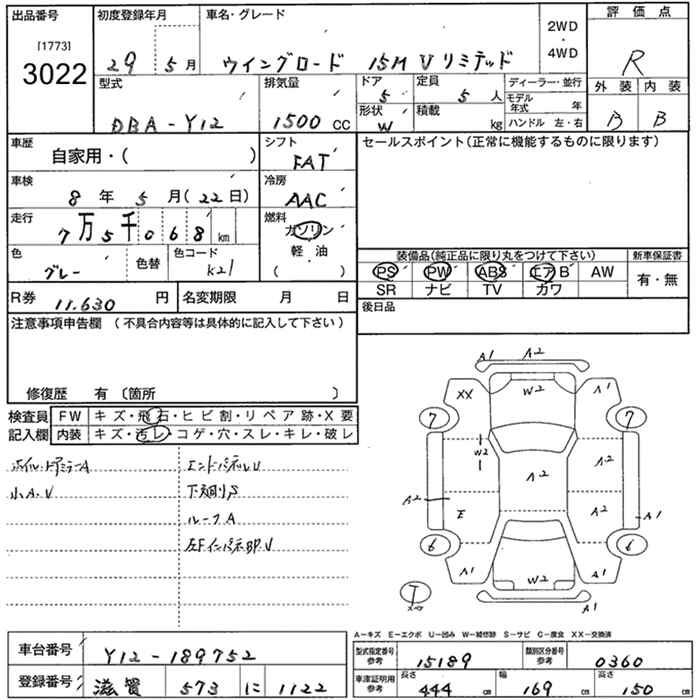 出品番号
[1773]
3022
初度登録年月
29 5月
車名・グレード
ウイングロード 15M Vリミテッド
2WD
・
4WD
評価点
R
外装 内装
B B
型式
DBA-Y12
排気量
1500 CC
ドア
5
定員
5 人
形状
W
積載
kg
ディーラー・並行
モデル年式 年
ハンドル 左・右
車歴
自家用・( )
シフト
FAT
セールスポイント(正常に機能するものに限ります)
車検
8 年 5 月(22日)
冷房
AAC
走行
7万5千068km
燃料
ガソリン
軽・油
( )
色
グレー
色替
色コード
K21
装備品(純正品に限り丸をつけて下さい)
PS PW ABS エアB AW
SR ナビ TV カワ
新車保証書
有・無
R券 11.630 円
名変期限 月 日
後日品
注意事項申告欄 (不具合内容等は具体的に記入して下さい)
修復歴 有 〔箇所 〕
検査員
記入欄
FW キズ・飛石・ヒビ割・リペア跡・X要
内装 キズ・汚レ・コゲ・穴・スレ・キレ・破レ
ホイル・ドアミラーA
小A.U
エンドパネルU
下廻りS
ルーフA
左FインパネBP.U
A1 A2
XX W2 A1
7 7
W2 A2 A2
A2 E A2 A1
6 6
A1 W2 A1
A1
A-キズ E-エクボ U-凹み W-補修跡 S-サビ C-腐食 XX-交換済
車台番号 Y12-189752
登録番号 滋賀 573 に 1122
型式指定番号
参考
15189
類別区分番号
参考
0360
車庫証明用
参考
長さ 444 cm
幅 169 cm
高さ 150 cm